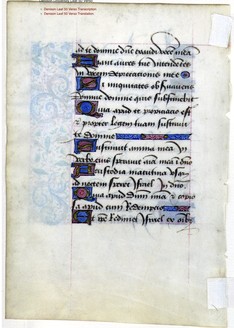 Denison Leaf 50 Verso Translation
ad te domine dñe exaudi vocē meā
Fiant aures tue intendētes
in vocem deprecationis mee
Si iniquitates observaveris
domine domine quis sustinebit
Quia apud te propiciacio est
et propter legem tuam sustinui
te domine
Sustinuit anima mea in
verbo eius speravit aīa mea ī dño
A custodia matutina usq
ad noctem speret israel in dño
Quia apud dñm mīa et copio
sa apud eum redempcio
Et ipē redimet israel ex oīb